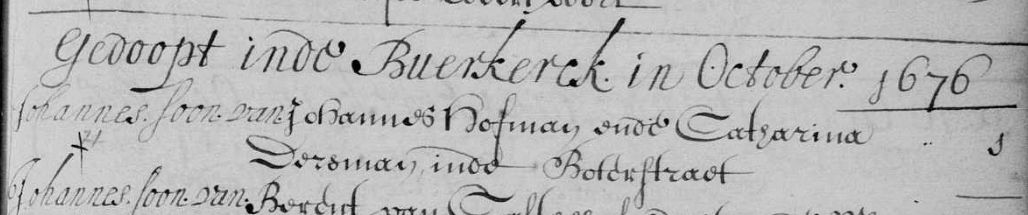 Gedoopt inde Buerkerck. in October. 1676
Johannes. soon. van Johannes Hofman ende Catharina
Dersman, inde Boterstraet 1
Johannes. soon. van. Berent van